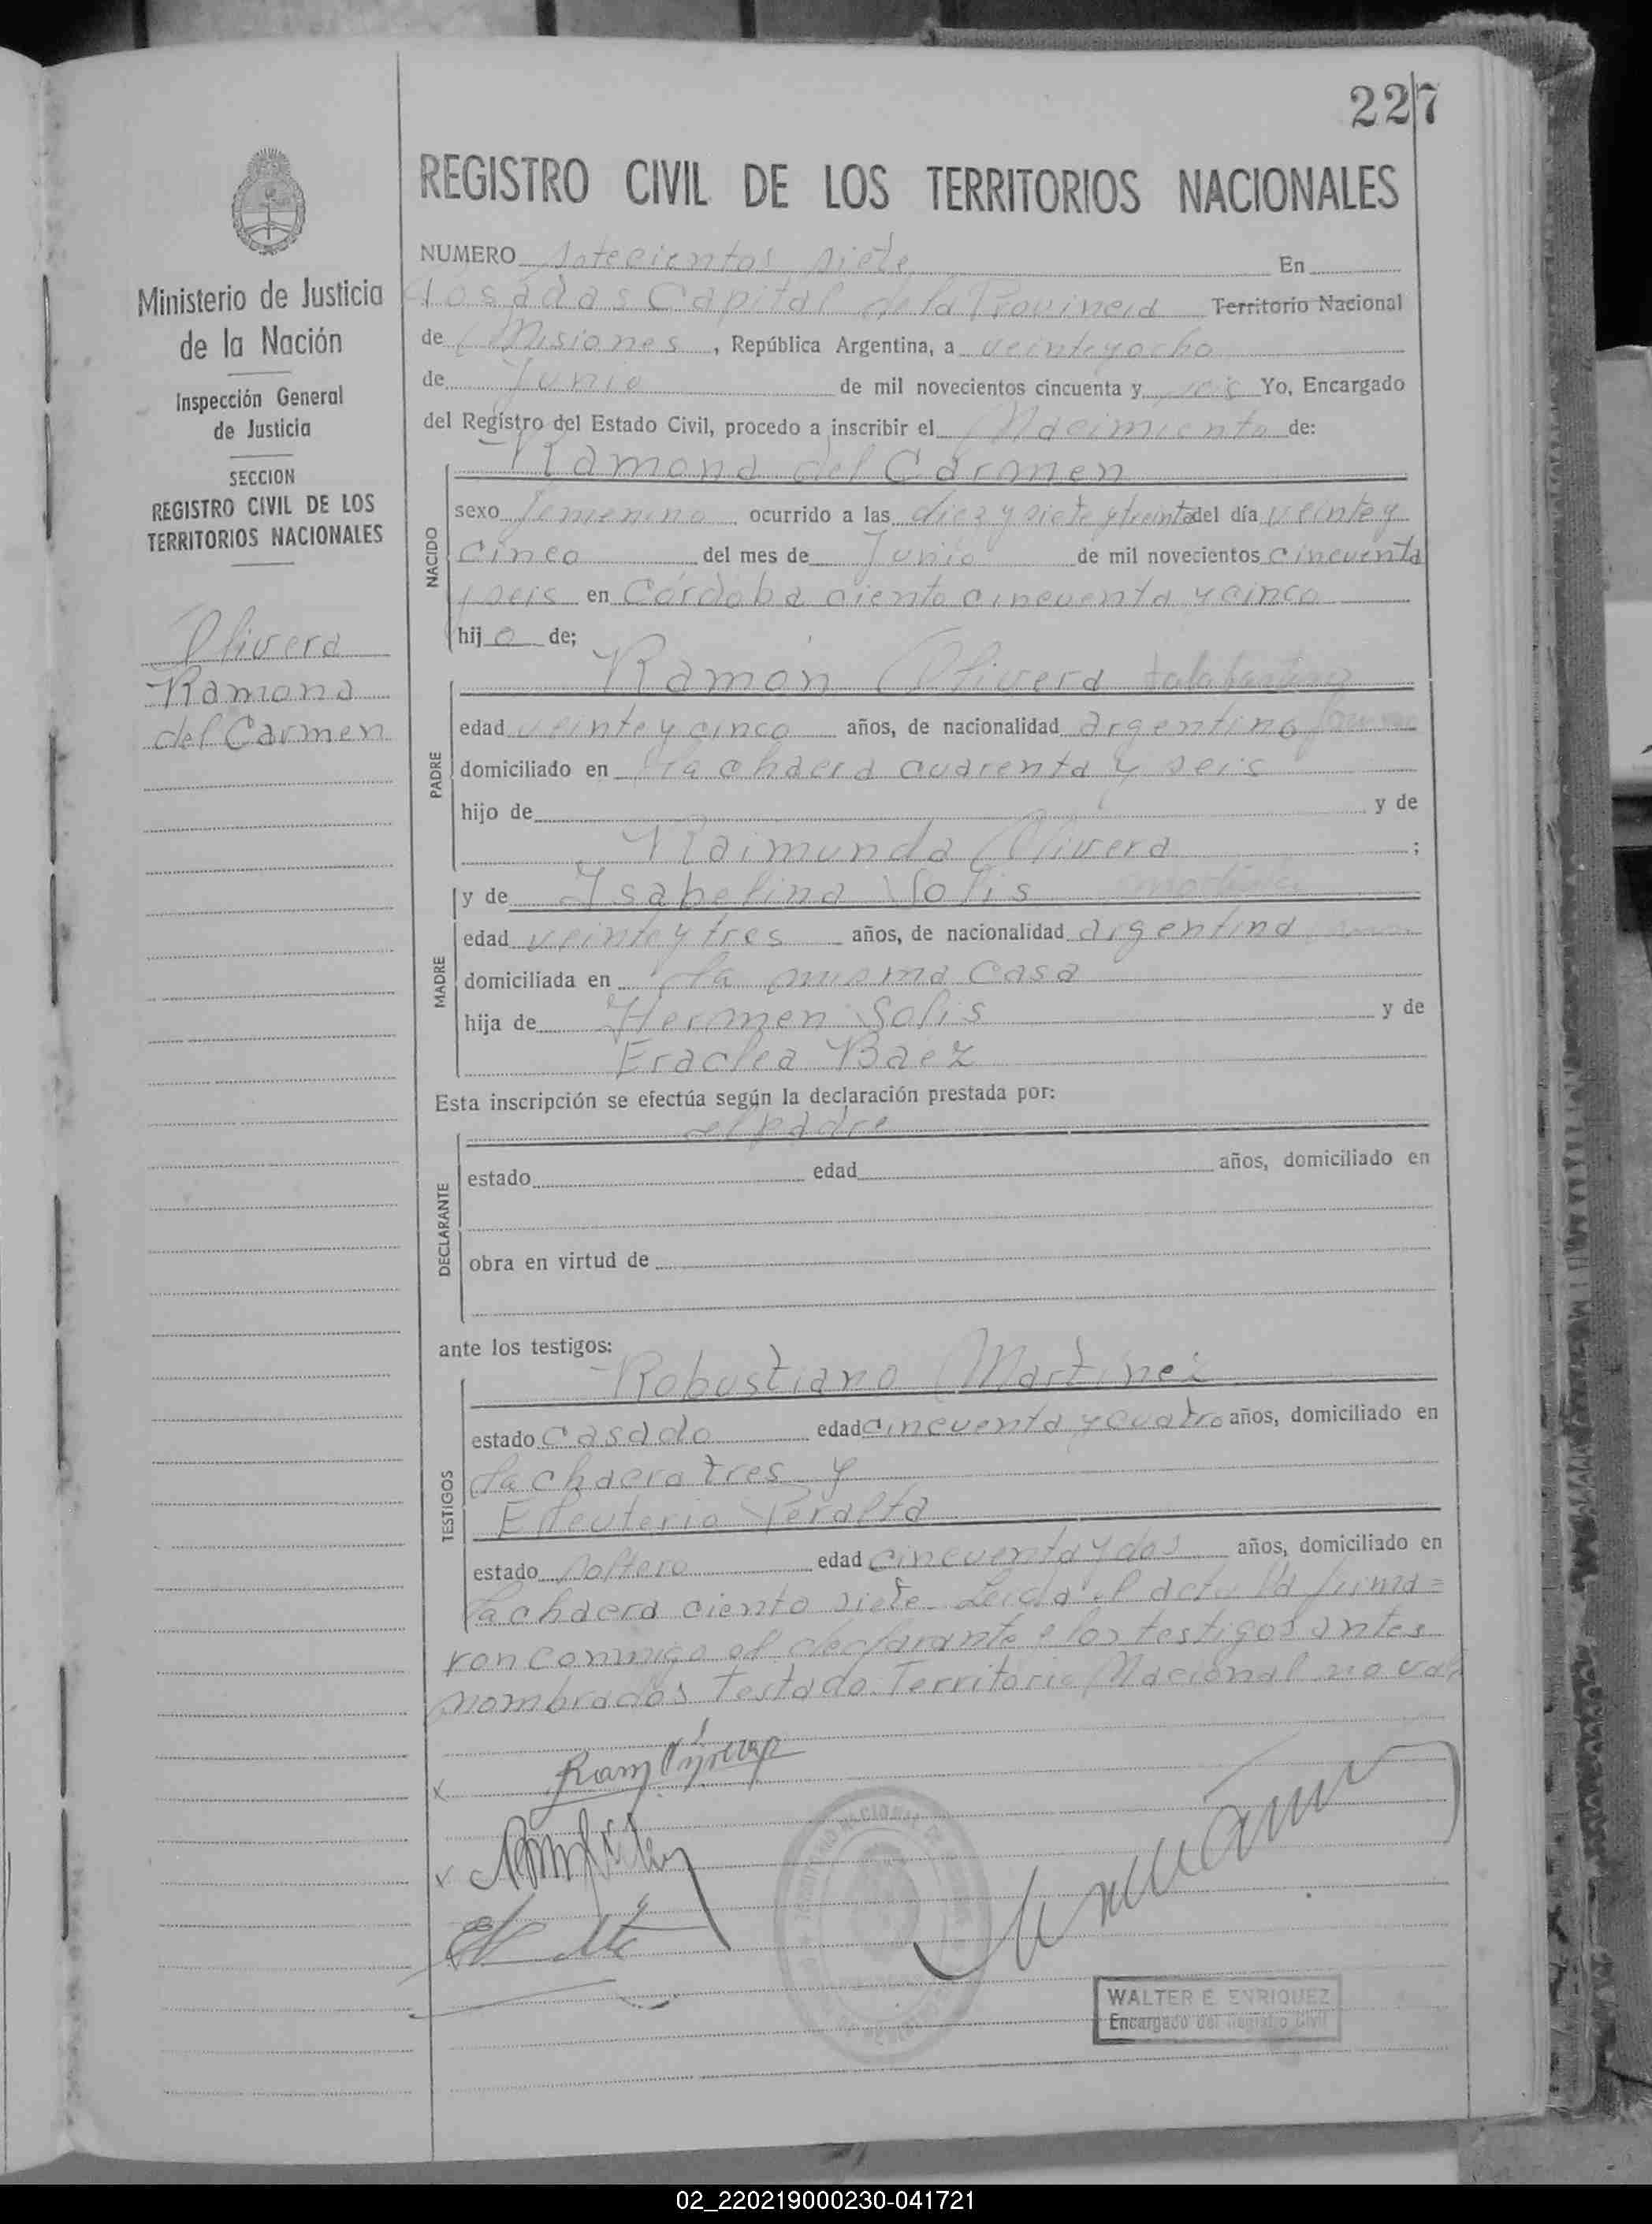 227
REGISTRO CIVIL DE LOS TERRITORIOS NACIONALES
Ministerio de Justicia
de la Nación
Inspección General
de Justicia
SECCION
REGISTRO CIVIL DE LOS
TERRITORIOS NACIONALES
Olivera
Ramona
del Carmen
NUMERO setecientos siete En
Posadas Capital de la Provincia Territorio Nacional
de Misiones, República Argentina, a veinteyocho
de Junio de mil novecientos cincuenta y seis Yo, Encargado
del Registro del Estado Civil, procedo a inscribir el Nacimiento de:
NACIDO
Ramona del Carmen
sexo femenino ocurrido a las diez y siete y treinta del día veinte y
cinco del mes de Junio de mil novecientos cincuenta
y seis en Córdoba ciento cincuenta y cinco
hija de;
PADRE
Ramón Olivera
edad veinte y cinco años, de nacionalidad argentino
domiciliado en la chacra cuarenta y seis
hijo de y de
Raimunda Olivera ;
MADRE
y de Isabelina Solis
edad veinte y tres años, de nacionalidad argentina
domiciliada en la misma casa
hija de Hermen Solis y de
Eraclea Baez
Esta inscripción se efectúa según la declaración prestada por:
DECLARANTE
el padre
estado edad años, domiciliado en
obra en virtud de
ante los testigos:
TESTIGOS
Robustiano Martinez
estado casado edad cincuenta y cuatro años, domiciliado en
la chacra tres y
Eleuterio Peralta
estado soltero edad cincuenta y dos años, domiciliado en
la chacra ciento siete. Leida el acta la firma=
ron conmigo el declarante e los testigos antes
nombrados Testado: Territorio Nacional no vale
WALTER E. ENRIQUEZ
Encargado del Registro Civil
02_220219000230-041721